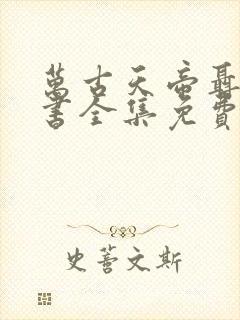 萬古天帝聶
書全集免費
史蒼文斯